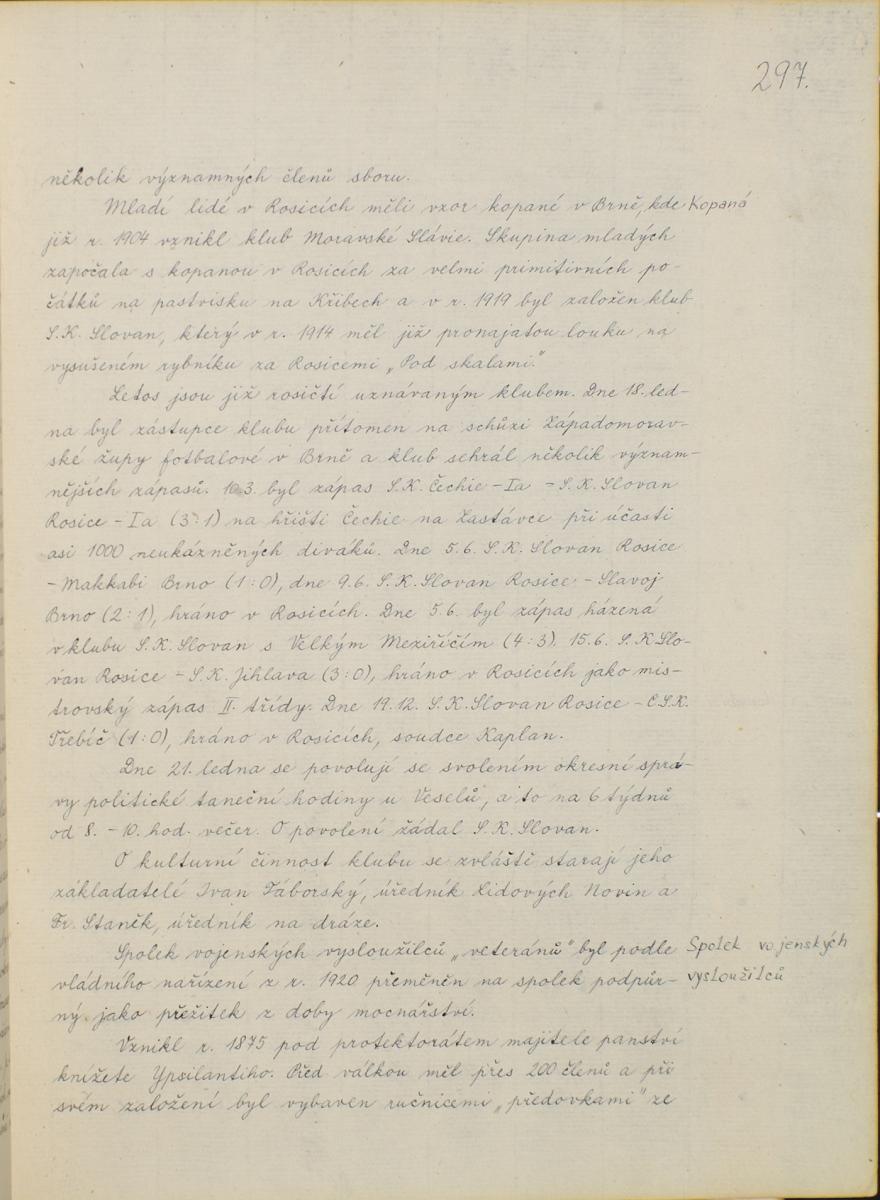 297.
několik významných členů sboru.
Mladí lidé v Rosicích měli vzor kopané v Brně, kde Kopaná
již r. 1904 vznikl klub Moravské Slávie. Skupina mladých
započala s kopanou v Rosicích za velmi primitivních po-
čátků na pastvisku na Křibech a v r. 1919 byl založen klub
S.K. Slovan, který v r. 1914 měl již pronajatou louku na
vysušeném rybníku za Rosicemi „Pod skalami."
Letos jsou již rosičtí uznávaným klubem. Dne 18. led-
na byl zástupce klubu přítomen na schůzi Západomorav-
ské župy fotbalové v Brně a klub sehrál několik význam-
nějších zápasů. 10.3. byl zápas S.K. Čechie - Ia - S.K. Slovan
Rosice - Ia (3:1) na hřišti Čechie na Zastávce při účasti
asi 1000 neukázněných diváků. Dne 5.6. S.K. Slovan Rosice
- Makkabi Brno (1:0), dne 9.6. S.K. Slovan Rosice - Slavoj
Brno (2:1), hráno v Rosicích. Dne 5.6. byl zápas házená
v klubu S.K. Slovan s Velkým Meziříčím (4:3). 15.6. S.K Slo-
van Rosice - S.K. Jihlava (3:0), hráno v Rosicích jako mis-
trovský zápas II. třídy. Dne 19.12. S.K. Slovan Rosice - C.S.K.
Třebíč (1:0), hráno v Rosicích, soudce Kaplan.
Dne 21. ledna se povolují se svolením okresní sprá-
vy politické taneční hodiny u Veselů, a to na 6 týdnů
od 8. - 10. hod. večer. O povolení žádal S.K. Slovan.
O kulturní činnost klubu se zvláště starají jeho
základatelé Ivan Táborský, úředník Lidových Novin a
Fr. Staněk, úředník na dráze.
Spolek vojenských vysloužilců „veteránů" byl podle Spolek vojenských
vládního nařízení z r. 1920 přeměněn na spolek podpůr- vysloužilců
ný jako přežitek z doby mocnářství.
Vznikl r. 1875 pod protektorátem majitele panství
knížete Ypsilantiho. Před válkou měl přes 200 členů a při
svém založení byl vybaven ručnicemi „předovkami" ze